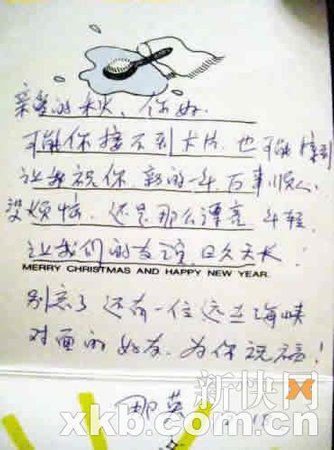 亲爱的秋秋，你好．
可能你接不到卡片，也可能接到
让我祝你新的一年，万事顺心
没烦恼．还是那么漂亮．年轻．
让我们的友谊，日久天长！
MERRY CHRISTMAS AND HAPPY NEW YEAR.
别忘了还有一位远在海峡
对面的好友，为你祝福！
那英
新快网
xkb.com.cn